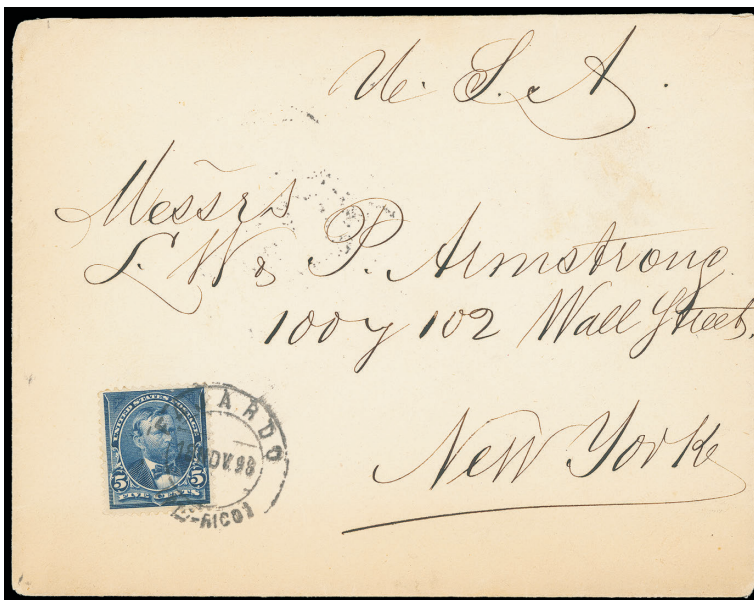 U. S. A.
Messrs
L. W. & P. Armstrong
100 y 102 Wall Street.
New York
UNITED STATES POSTAGE
5 5
FIVE CENTS
NOV. 98